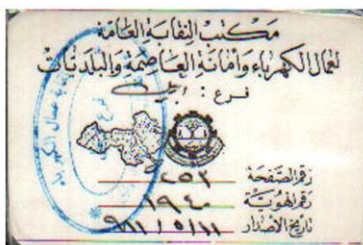 مكتب النقابة العامة
لعمال الكهرباء وأمانة العاصمة والبلديات
فرع :
رقم الصفحة ٢٥٣
رقم الهوية ١٩٤٠
تاريخ الاصدار